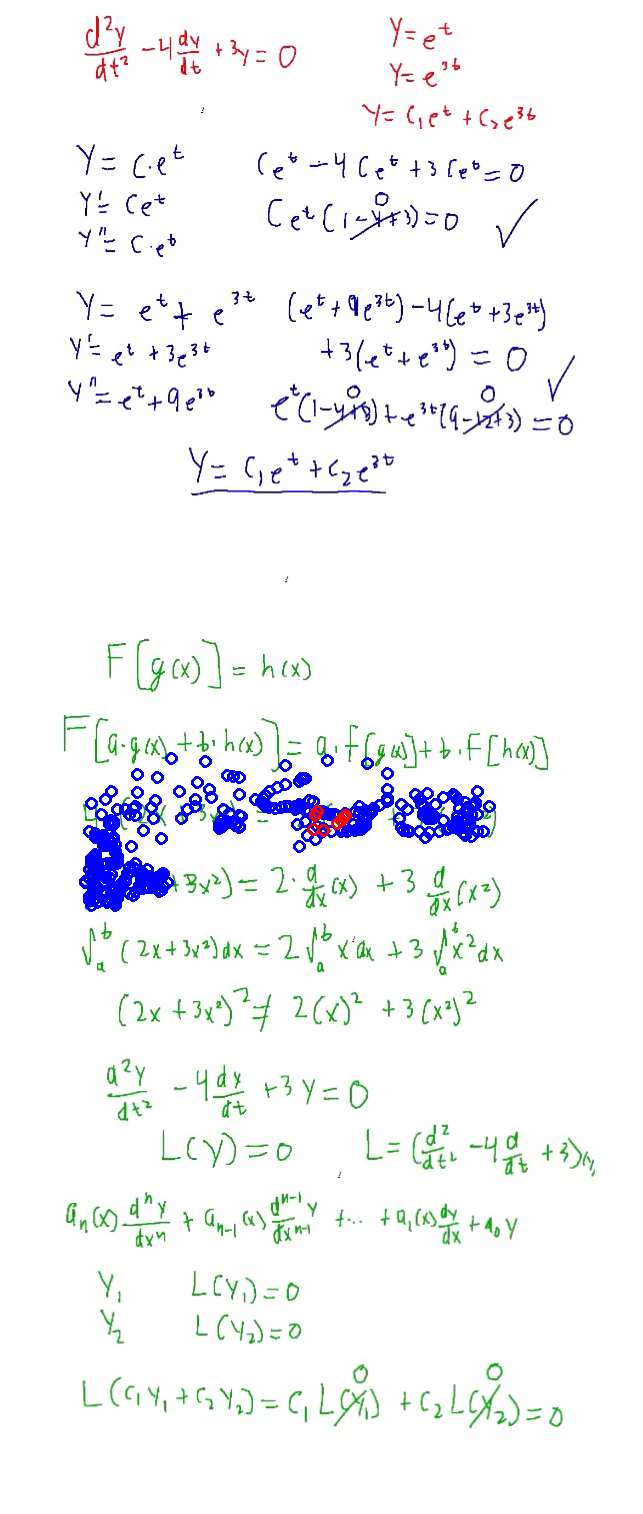 d²y/dt² - 4 dy/dt + 3y = 0    y = e^t
y = e^3t
y = c₁e^t + c₂e^3t
y = c·e^t    Ce^t - 4Ce^t + 3Ce^t = 0
y' = Ce^t    Ce^t(1-4+3) = 0 ✓
0
y'' = C·e^t
y = e^t + e^3t    (e^t + 9e^3t) - 4(e^t + 3e^3t)
y' = e^t + 3e^3t    + 3(e^t + e^3t) = 0 ✓
0    0
y'' = e^t + 9e^3t    e^t(1-4+3) + e^3t(9-12+3) = 0
y = c₁e^t + c₂e^3t
F[g(x)] = h(x)
F[a·g(x) + b·h(x)] = a·F[g(x)] + b·F[h(x)]
+ 3x²) = 2·d/dx(x) + 3 d/dx(x²)
∫_a^b (2x+3x²)dx = 2∫_a^b x dx + 3∫_a^b x²dx
(2x + 3x²)² ≠ 2(x)² + 3(x²)²
d²y/dt² - 4 dy/dt + 3y = 0
L(y) = 0    L = (d²/dt² - 4 d/dt + 3)
aₙ(x) dⁿy/dxⁿ + aₙ₋₁(x) dⁿ⁻¹y/dxⁿ⁻¹ + ... + a₁(x) dy/dx + a₀y
y₁    L(y₁) = 0
y₂    L(y₂) = 0
0    0
L(c₁y₁ + c₂y₂) = c₁L(y₁) + c₂L(y₂) = 0